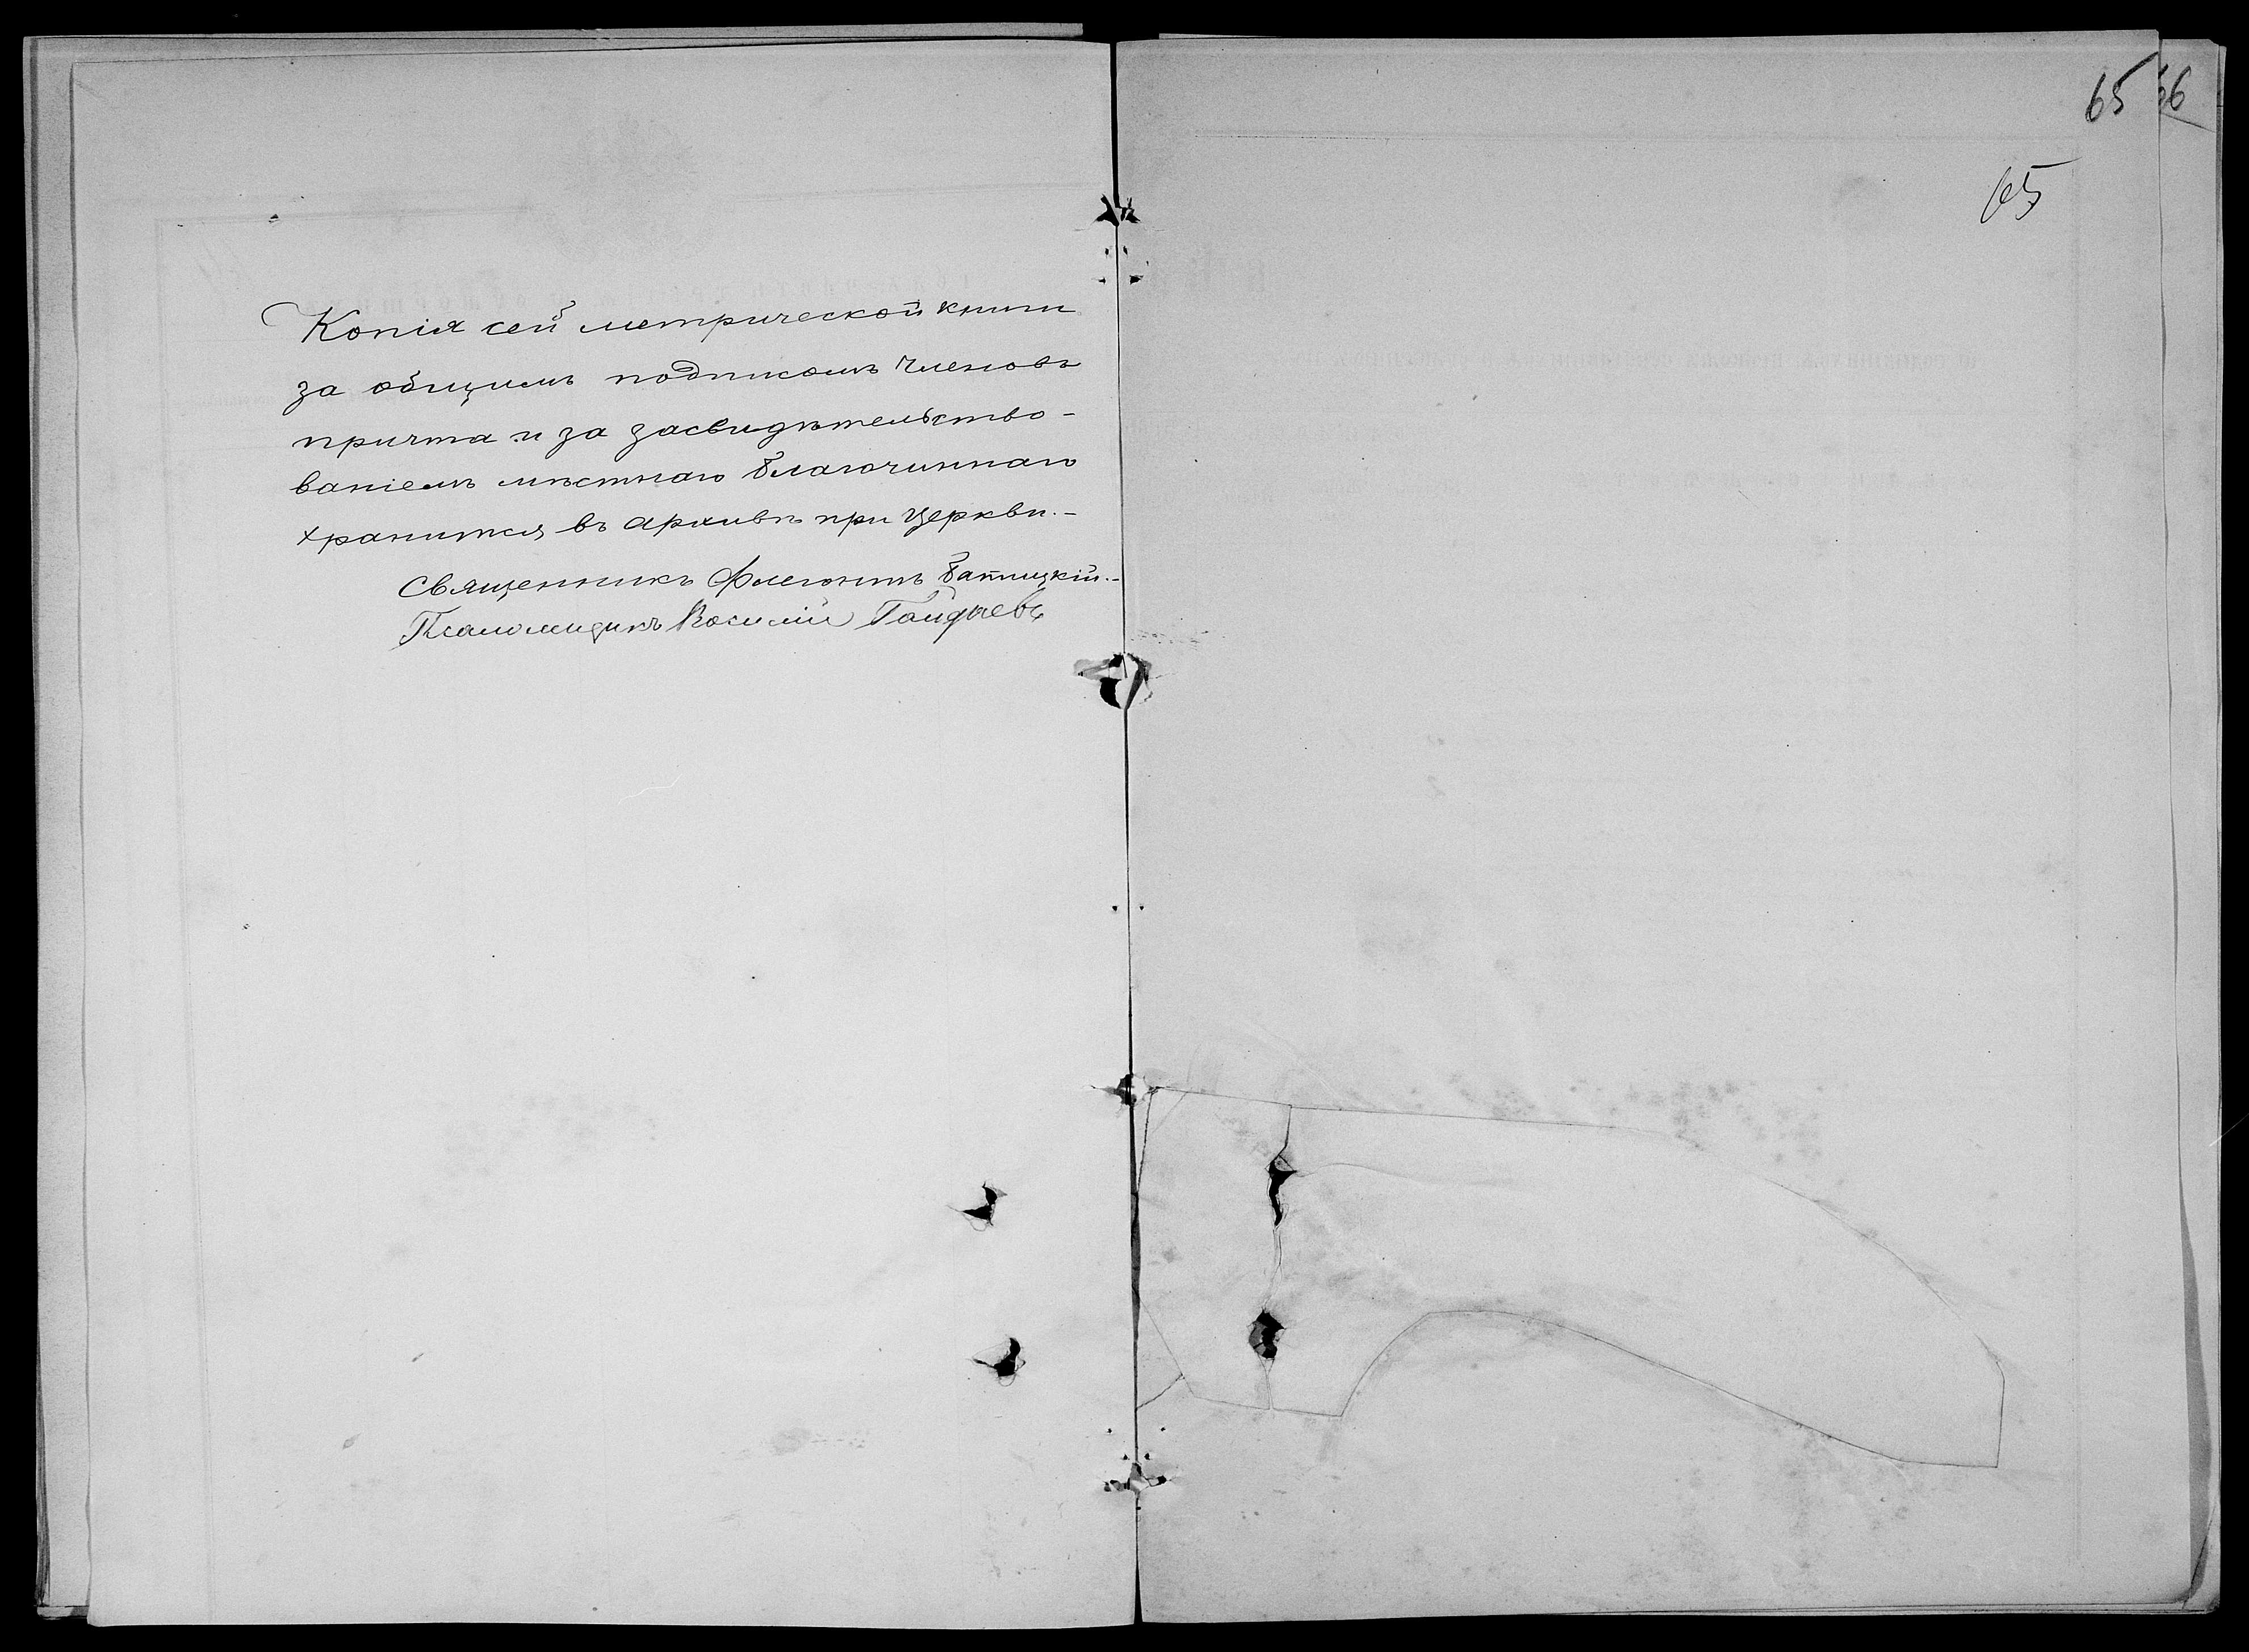 Копія сей метрической книги
за общимъ подписомъ членовъ
причта и за засвидѣтельство-
ваніемъ мѣстнаго благочиннаго
хранится въ архивѣ при Церкви.-
Священникъ Флегонтъ Батицкій.-
Псаломщикъ Василій
65
66
65